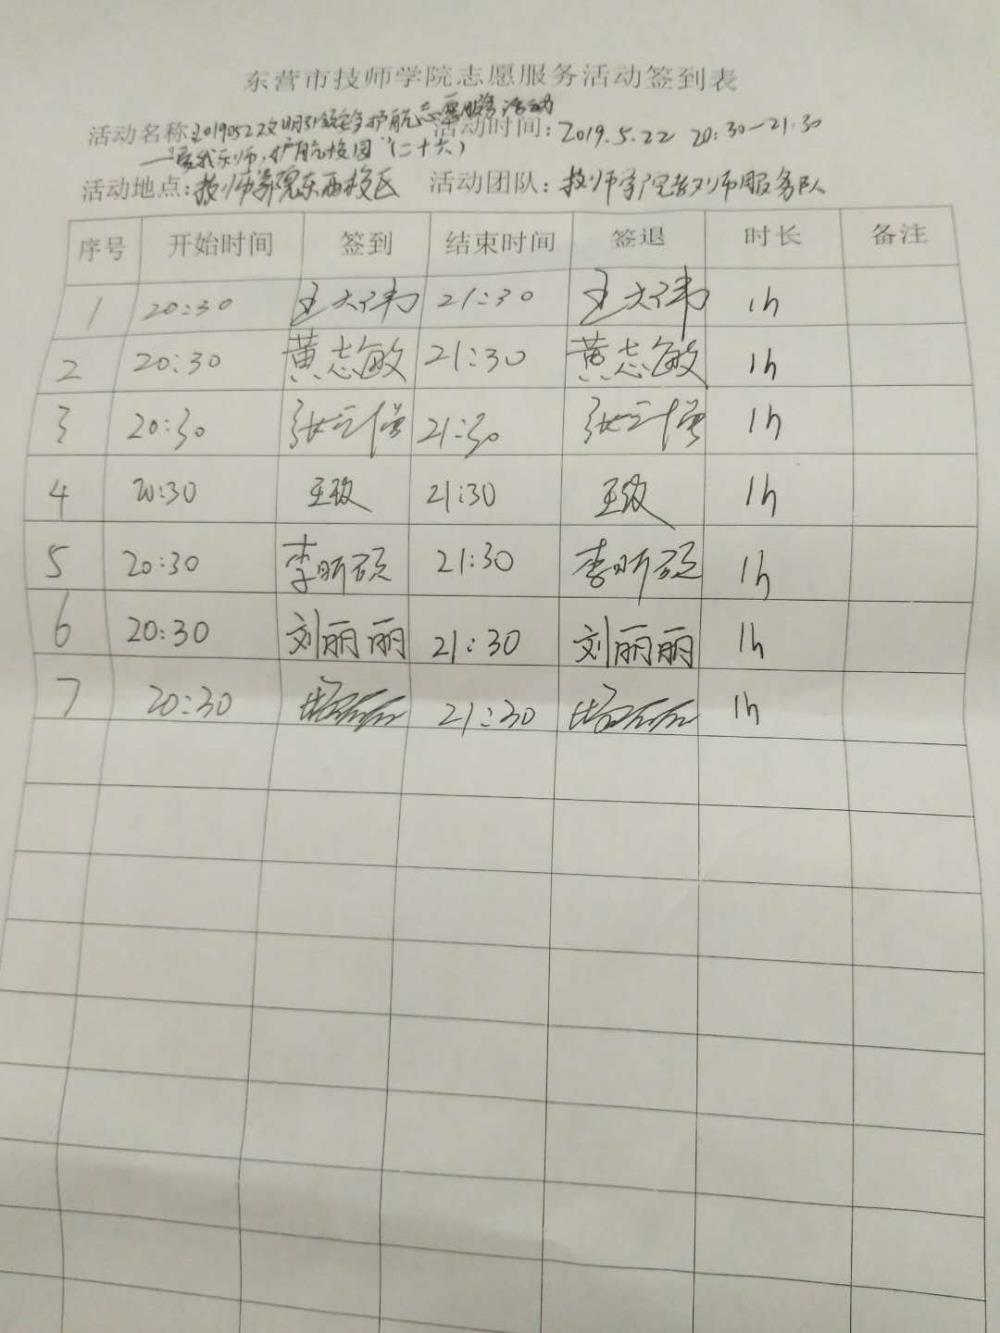 东营市技师学院志愿服务活动签到表
活动名称:20190522文明引领安全护航志愿服务活动 活动时间:2019.5.22 20:30—21:30
—"爱我东师,护航校园"(二十六)
活动地点:技师学院东西校区 活动团队:技师学院教师服务队
序号 开始时间 签到 结束时间 签退 时长 备注
1 20:30 王大伟 21:30 王大伟 1h
2 20:30 黄志敏 21:30 黄志敏 1h
3 20:30 张立增 21:30 张立增 1h
4 20:30 王政 21:30 王政 1h
5 20:30 李昕硕 21:30 李昕硕 1h
6 20:30 刘丽丽 21:30 刘丽丽 1h
7 20:30 21:30 1h